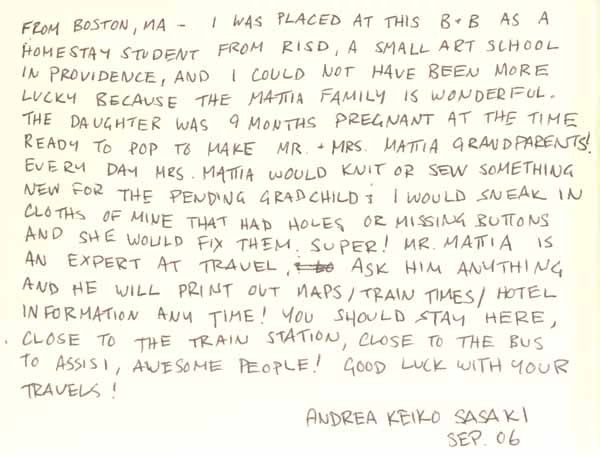 FROM BOSTON, MA - I WAS PLACED AT THIS B+B AS A
HOMESTAY STUDENT FROM RISD, A SMALL ART SCHOOL
IN PROVIDENCE, AND I COULD NOT HAVE BEEN MORE
LUCKY BECAUSE THE MATTIA FAMILY IS WONDERFUL.
THE DAUGHTER WAS 9 MONTHS PREGNANT AT THE TIME
READY TO POP TO MAKE MR. + MRS. MATTIA GRANDPARENTS!
EVERY DAY MRS. MATTIA WOULD KNIT OR SEW SOMETHING
NEW FOR THE PENDING GRADCHILD; I WOULD SNEAK IN
CLOTHS OF MINE THAT HAD HOLES OR MISSING BUTTONS
AND SHE WOULD FIX THEM. SUPER! MR. MATTIA IS
AN EXPERT AT TRAVEL, ASK HIM ANYTHING
AND HE WILL PRINT OUT MAPS/TRAIN TIMES/HOTEL
INFORMATION ANY TIME! YOU SHOULD STAY HERE,
CLOSE TO THE TRAIN STATION, CLOSE TO THE BUS
TO ASSISI, AWESOME PEOPLE! GOOD LUCK WITH YOUR
TRAVELS!
ANDREA KEIKO SASAKI
SEP. 06